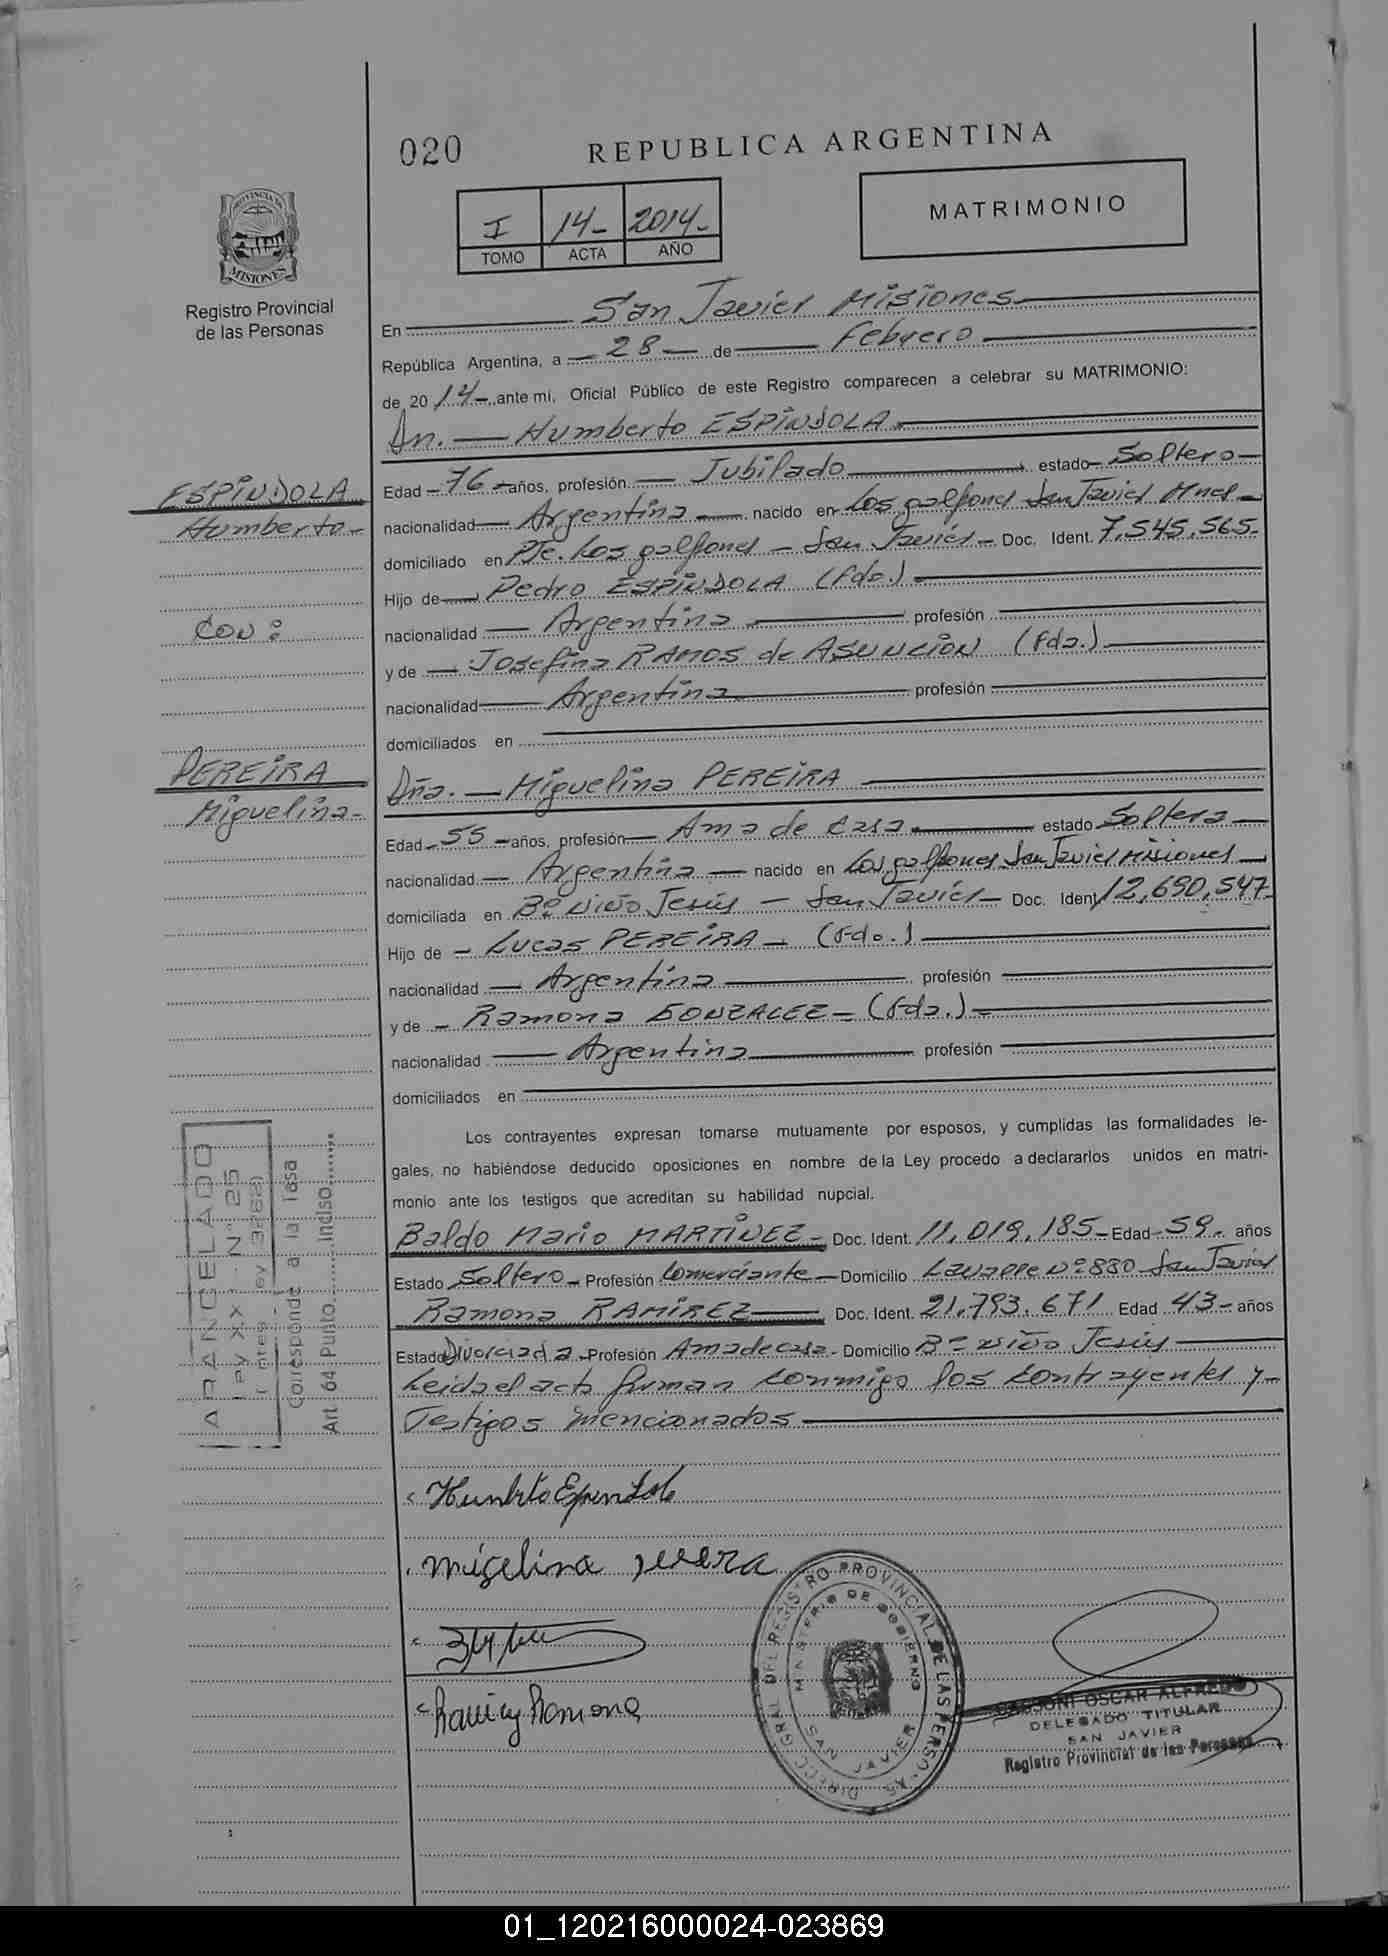 020
REPUBLICA ARGENTINA
I 14- 2014-
TOMO ACTA AÑO
MATRIMONIO
PROVINCIA DE
MISIONES
Registro Provincial
de las Personas
En San Javier Misiones
República Argentina, a 28 de Febrero
de 2014- ante mi, Oficial Público de este Registro comparecen a celebrar su MATRIMONIO:
Dn. Humberto ESPíNDOLA
Edad 76 años, profesión Jubilado estado Soltero
nacionalidad Argentina nacido en Los galpones San Javier Mnes
domiciliado en Pje. Los galpones - San Javier - Doc. Ident. 7.545.565.
Hijo de Pedro ESPíNDOLA (fdo.)
nacionalidad Argentina profesión
y de Josefina RAMOS de ASUNCIÓN (fda.)
nacionalidad Argentina profesión
domiciliados en
Dña. Miguelina PEREiRA
Edad 55 años, profesión Ama de casa estado Soltera
nacionalidad Argentina nacido en Los galpones San Javier Misiones
domiciliada en Bº Niño Jesús - San Javier - Doc. Ident 12,690,547
Hijo de Lucas PEREiRA - (fdo.)
nacionalidad Argentina profesión
y de Ramona GONZALEZ - (fda.)
nacionalidad Argentina profesión
domiciliados en
Los contrayentes expresan tomarse mutuamente por esposos, y cumplidas las formalidades le-
gales, no habiéndose deducido oposiciones en nombre de la Ley procedo a declararlos unidos en matri-
monio ante los testigos que acreditan su habilidad nupcial.
Baldo Mario MARTíNEZ - Doc. Ident. 11,019,185 - Edad 59 años
Estado Soltero - Profesión Comerciante - Domicilio Lavalle Nº 880 San Javier
Ramona RAMíREZ Doc. Ident. 21.793.671 Edad 43 años
Estado Divorciada - Profesión Ama de casa - Domicilio Bº Niño Jesús
Leida el acta firman conmigo los contrayentes y
Testigos mencionados
ESPíNDOLA
Humberto
CON:
PEREiRA
Miguelina
ARANCELADO
Ley XX - Nº 25
(antes Ley 3262)
Corresponde a la Tasa
Art. 64 Punto Inciso
Humberto Espindola
miselina pereira
Ramirez Ramona
DIRECC. GRAL DEL REGISTRO PROVINCIAL DE LAS PERSONAS
MINISTERIO DE GOBIERNO
SAN JAVIER
OSCAR ALFREDO
DELEGADO TITULAR
SAN JAVIER
Registro Provincial de las Personas
01_120216000024-023869